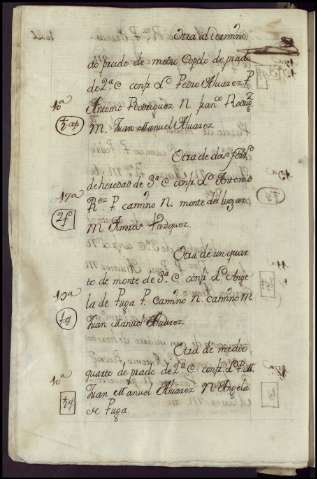 Otra id camino
do prado de medio Copelo de prado
de 2ª C confª Lᵉ Pedro Alvarez P.
10ª
Antonio Rodriguez N. franᶜᵒ Rodrᶻ
M. Juan Manuel Alvarez
Otra de dos ferrᵈᵒˢ
de heredad de 3ª C confª Lᵉ Antonio
17ª
Rᵉᶻ P. camino N. monte del lugar
2f
M. Amaro Vazquez.
Otra de un quar
to de monte de 3ª C confª Lᵉ Ange
19ª
la de Puga P. camino N. camino M
Juan Manuel Alvarez.
Otra de medio
quarto de prado de 2ª C confª Lᵉ P. M.
10ª
Juan Manuel Alvarez N. Angela
de Puga.